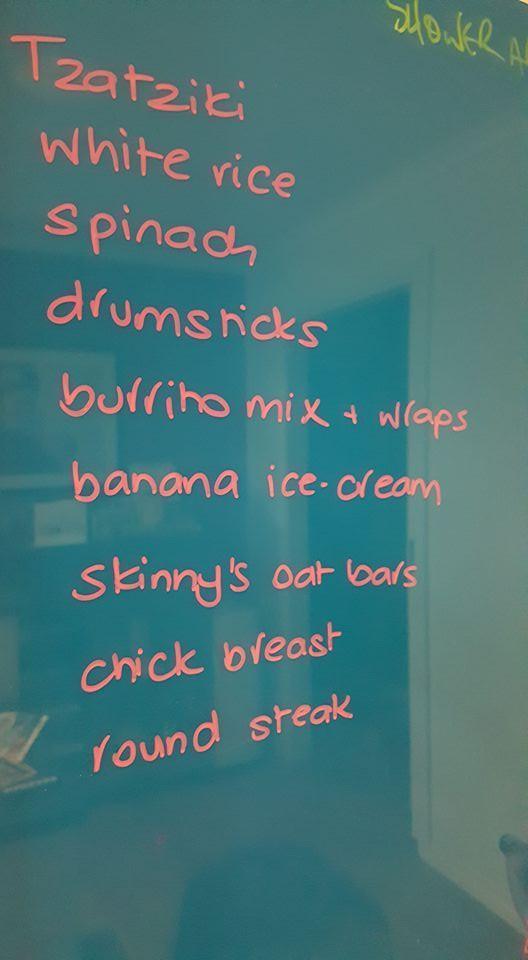 SHOWER
Tzatziki
white rice
spinach
drumsticks
burrito mix + wraps
banana ice-cream
skinny's oat bars
chick breast
round steak